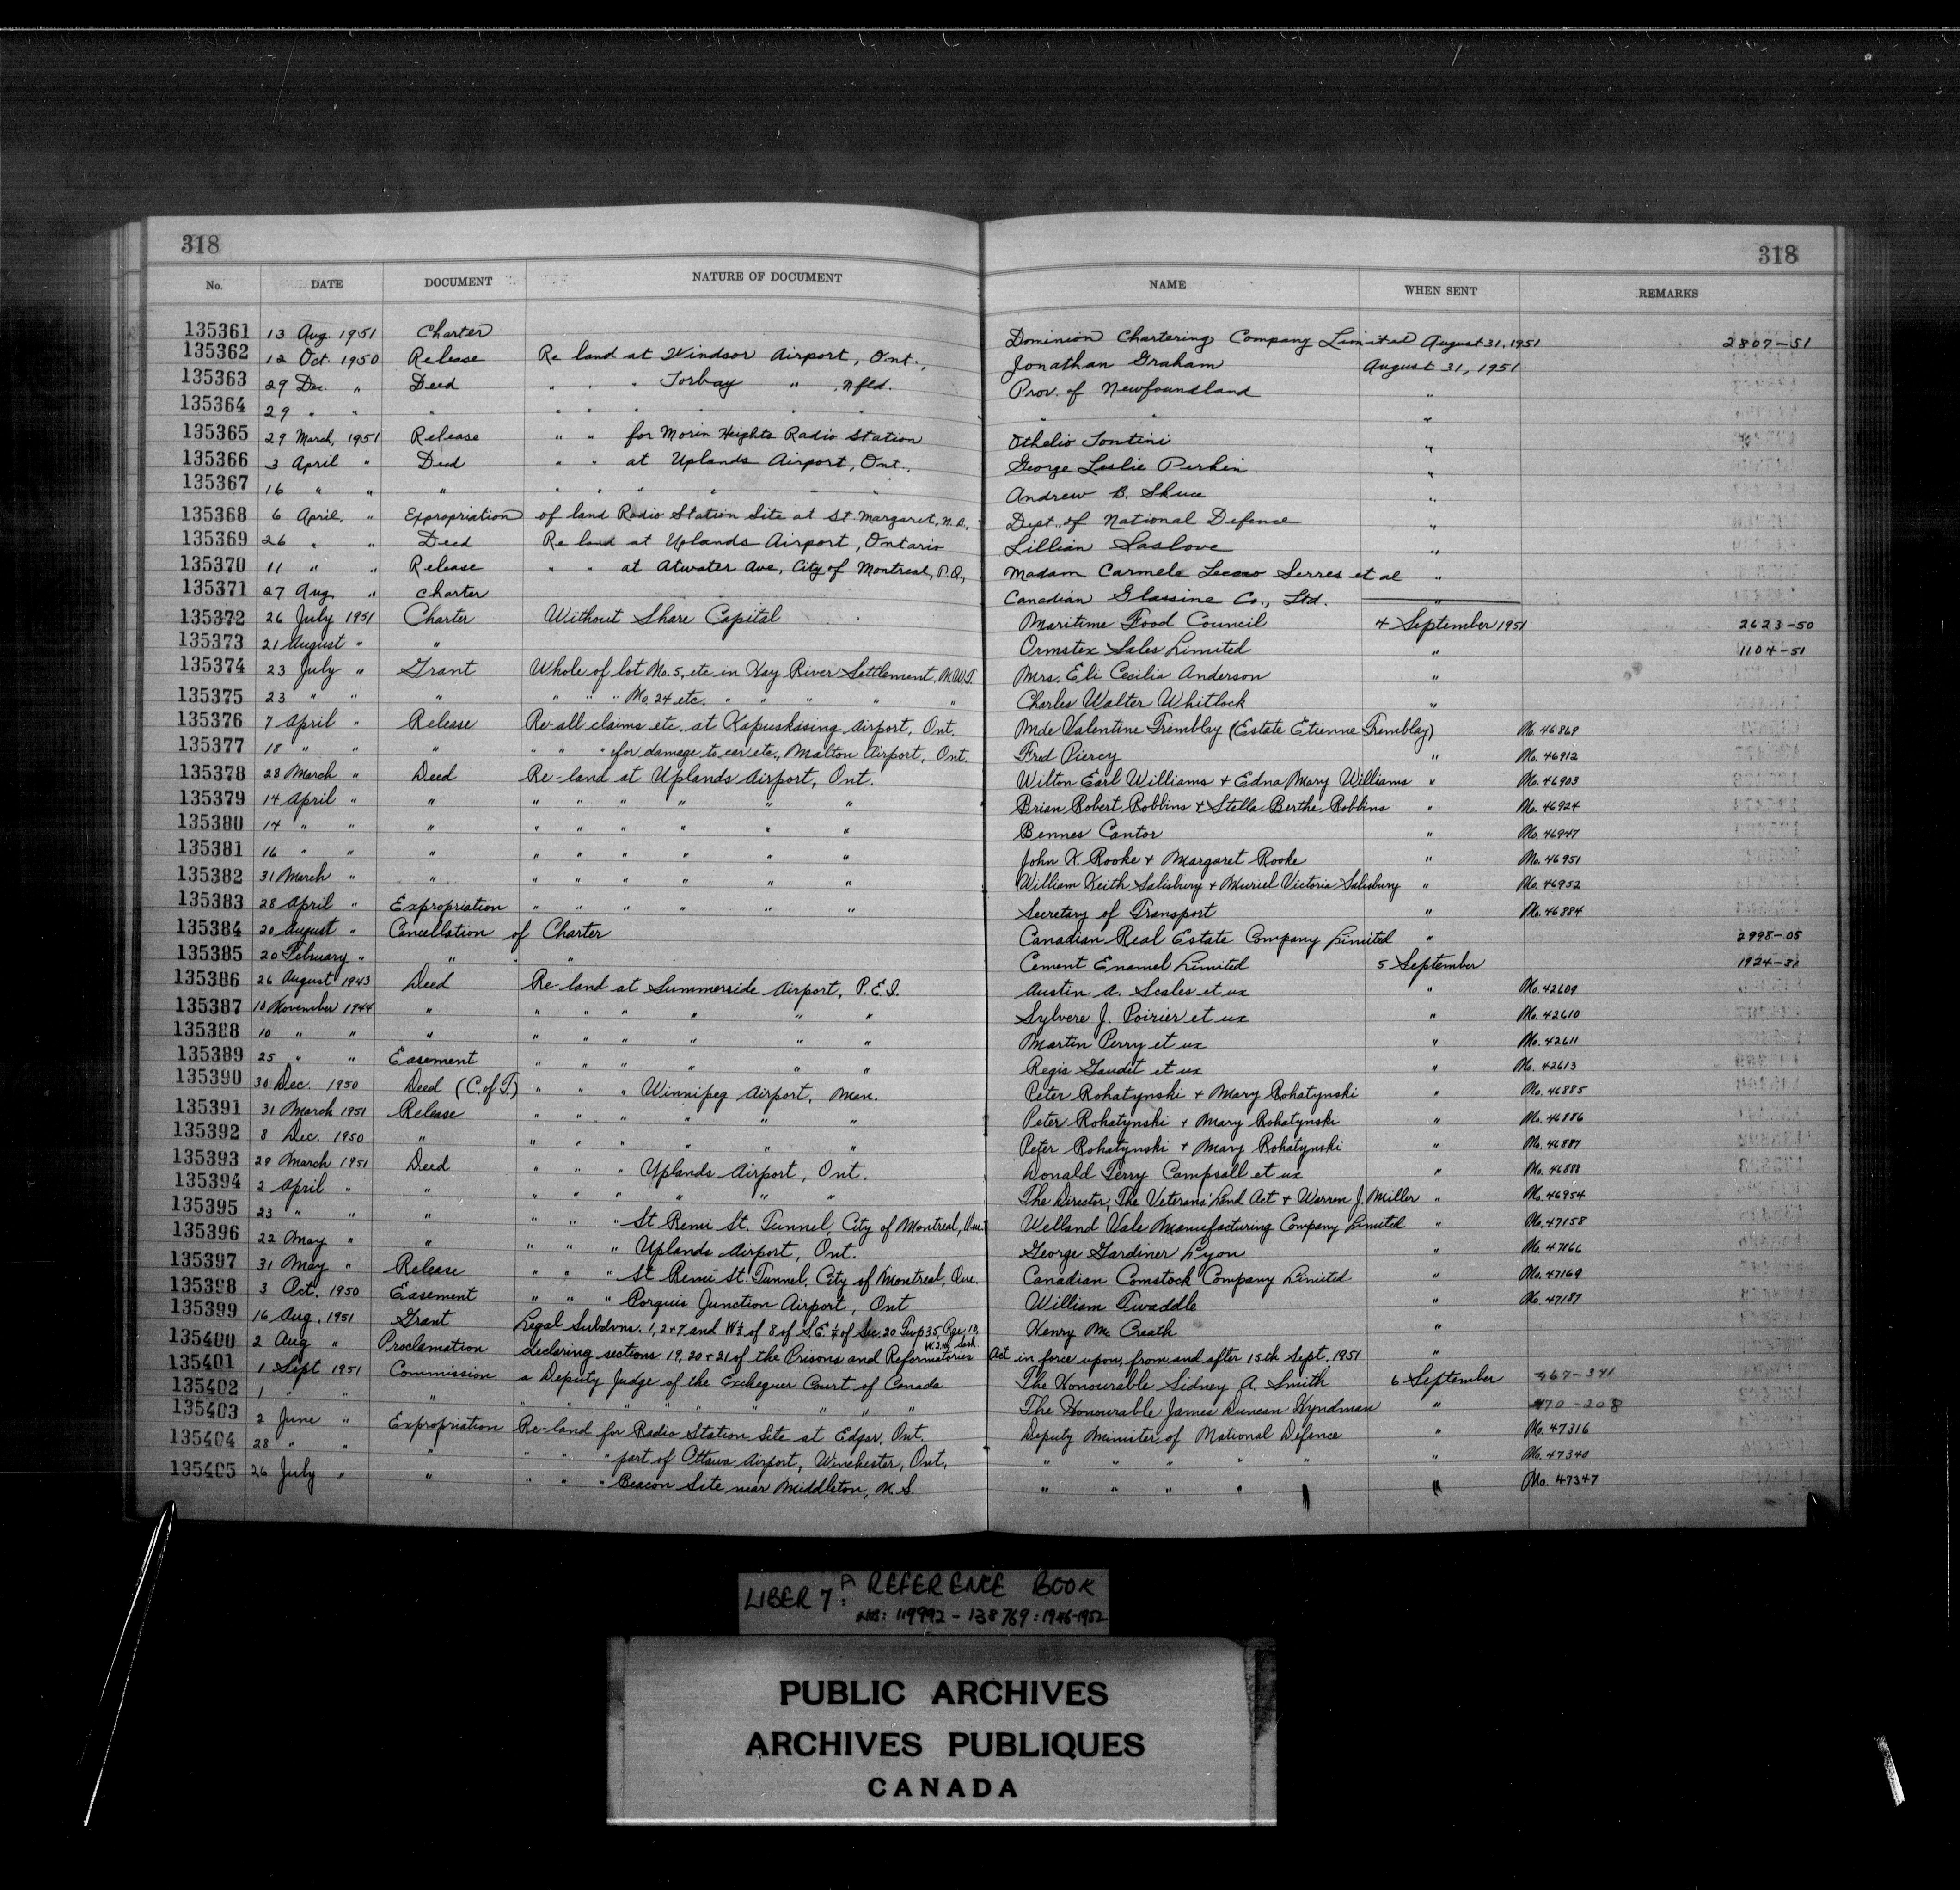 318 318
No. DATE DOCUMENT NATURE OF DOCUMENT NAME WHEN SENT REMARKS
135361 13 Aug. 1951 Charter Dominion Chartering Company Limited August 31, 1951 2807-51
135362 12 Oct. 1950 Release Re land at Windsor Airport, Ont., Jonathan Graham August 31, 1951
135363 29 Dec. " Deed " " " Torbay " , Nfld. Prov. of Newfoundland "
135364 29 " " " " " " " " " " " "
135365 29 March, 1951 Release " " for Morin Heights Radio Station Othelio Tontini "
135366 3 April " Deed " " at Uplands Airport, Ont., George Leslie Perkin "
135367 16 " " " " " " " " " Andrew B. Shuce "
135368 6 April, " Expropriation of land Radio Station Site at St. Margaret, N.B., Dept. of National Defence "
135369 26 " " Deed Re land at Uplands Airport, Ontario Lillian Saslove "
135370 11 " " Release " " at Atwater Ave, City of Montreal, P.Q., Madam Carmela Serres et al "
135371 27 Aug " Charter Canadian Glassine Co., Ltd. "
135372 26 July 1951 Charter Without Share Capital Maritime Food Council 4 September 1951 2623-50
135373 21 August " " Ormstex Sales Limited " 1104-51
135374 23 July " Grant Whole of lot No. 5, etc in Hay River Settlement, N.W.T. Mrs. Eli Cecilia Anderson "
135375 23 " " " " " " No. 24 etc. " " " " Charles Walter Whitlock "
135376 7 April " Release Re-all claims etc. at Kapuskasing Airport, Ont. Mde Valentine Tremblay (Estate Etienne Tremblay) No. 46869
135377 18 " " " " " " for damage to car etc., Malton Airport, Ont. Fred Piercy " No. 46912
135378 28 March " Deed Re-land at Uplands Airport, Ont. Wilton Earl Williams + Edna Mary Williams " No. 46903
135379 14 April " " " " " " " " Brian Robert Robbins + Stella Berthe Robbins " No. 46924
135380 14 " " " " " " " " " Bennes Cantor " No. 46947
135381 16 " " " " " " " " " John K. Rooke + Margaret Rooke " No. 46951
135382 31 March " " " " " " " " William Keith Salisbury + Muriel Victoria Salisbury " No. 46952
135383 28 April " Expropriation " " " " " " Secretary of Transport " No. 46884
135384 20 August " Cancellation of Charter Canadian Real Estate Company Limited " 2998-05
135385 20 February " " " " Cement Enamel Limited 5 September 1924-31
135386 26 August 1943 Deed Re-land at Summerside Airport, P.E.I. Austin A. Scales et ux " No. 42609
135387 10 November 1944 " " " " " " " Sylvere J. Poirier et ux " No. 42610
135388 10 " " " " " " " " " Martin Perry et ux " No. 42611
135389 25 " " Easement " " " " " " Regis Gaudet et ux " No. 42613
135390 30 Dec. 1950 Deed (C. of T.) " " " Winnipeg Airport, Man. Peter Rohatynski + Mary Rohatynski " No. 46885
135391 31 March 1951 Release " " " " " " Peter Rohatynski + Mary Rohatynski " No. 46886
135392 8 Dec. 1950 " " " " " " " Peter Rohatynski + Mary Rohatynski " No. 46887
135393 29 March 1951 Deed " " " Uplands Airport, Ont. Donald Terry Campsall et ux " No. 46888
135394 2 April " " " " " " " " The Director, The Veterans' Land Act + Warren J. Miller " No. 46954
135395 23 " " " " " " St. Remi St. Tunnel, City of Montreal, Que. Welland Vale Manufacturing Company Limited " No. 47158
135396 22 May " " " " " Uplands Airport, Ont. George Gardiner Lyon " No. 47166
135397 31 May " Release " " " St. Remi St. Tunnel, City of Montreal, Que. Canadian Comstock Company Limited " No. 47169
135398 3 Oct. 1950 Easement " " " Porquis Junction Airport, Ont William Twaddle " No. 47187
135399 16 Aug. 1951 Grant Legal Subdvns. 1, 2+7 and W½ of 8 of S.E. ¼ of Sec. 20 Twp 35, Rge. 18, W. 2nd, Sask. Henry Mc Creath "
135400 2 Aug " Proclamation declaring sections 19, 20+21 of the Prisons and Reformatories Act in force upon, from and after 15th Sept. 1951 "
135401 1 Sept 1951 Commission a Deputy Judge of the Exchequer Court of Canada The Honourable Sidney A. Smith 6 September 467-341
135402 1 " " " " " " " " " " " The Honourable James Duncan Hyndman " 470-208
135403 2 June " Expropriation Re-land for Radio Station Site at Edgar, Ont. Deputy Minister of National Defence " No. 47316
135404 28 " " " " " " part of Ottawa Airport, Winchester, Ont. " " " " " " No. 47340
135405 26 July " " " " " Beacon Site near Middleton, N.S. " " " " " " No. 47347
LIBER 7: A REFERENCE BOOK
NOS: 119992 - 138769: 1946-1952
PUBLIC ARCHIVES
ARCHIVES PUBLIQUES
CANADA